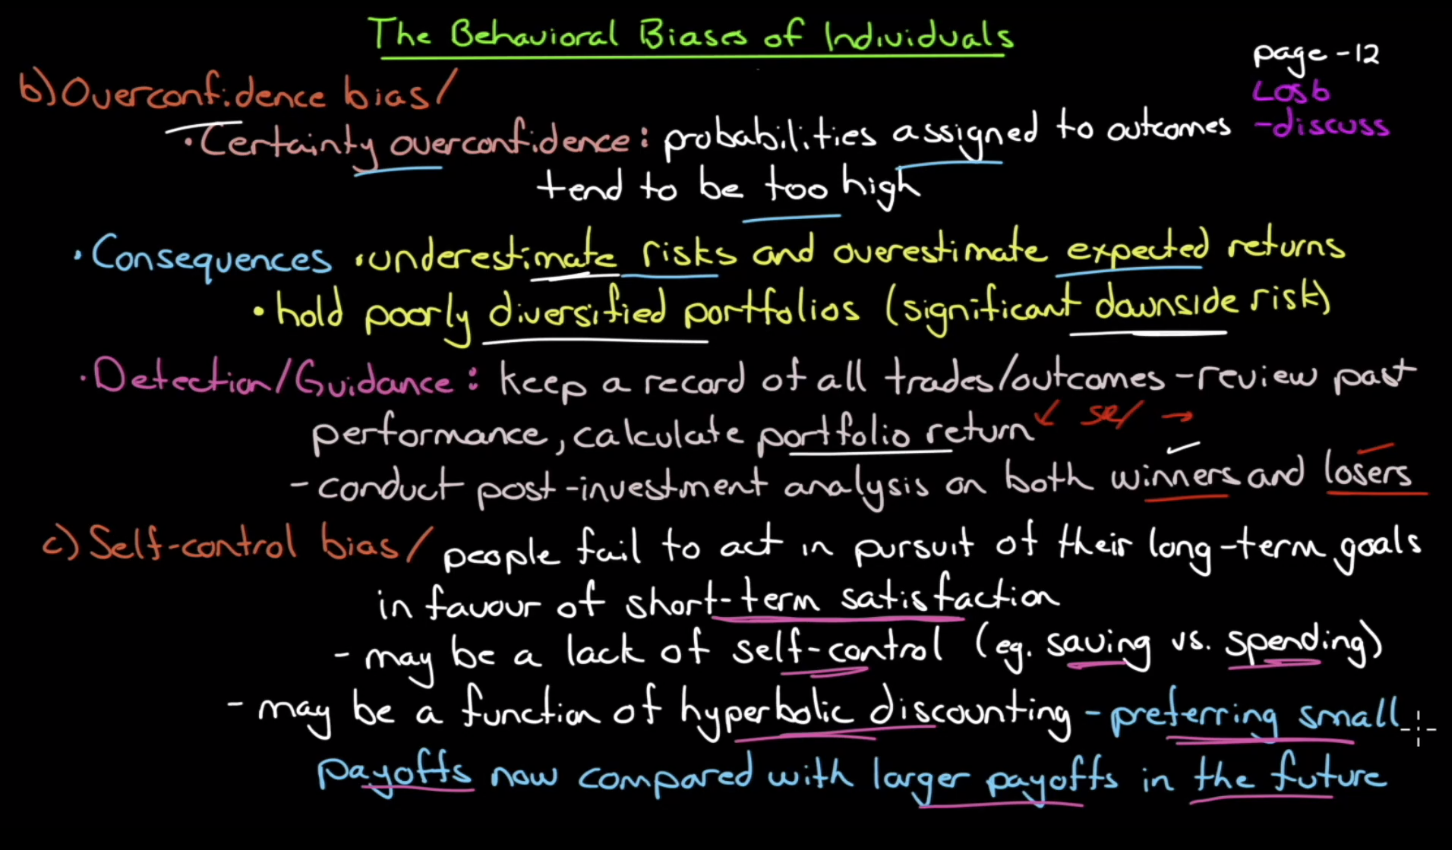 The Behavioral Biases of Individuals
page -12
LOS b
-discuss
b) Overconfidence bias/
• Certainty overconfidence: probabilities assigned to outcomes
tend to be too high
• Consequences • underestimate risks and overestimate expected returns
• hold poorly diversified portfolios (significant downside risk)
• Detection/Guidance: keep a record of all trades/outcomes - review past
performance, calculate portfolio return
- conduct post-investment analysis on both winners and losers
c) Self-control bias/ people fail to act in pursuit of their long-term goals
in favour of short-term satisfaction
- may be a lack of self-control (eg. saving vs. spending)
- may be a function of hyperbolic discounting - preferring small
payoffs now compared with larger payoffs in the future